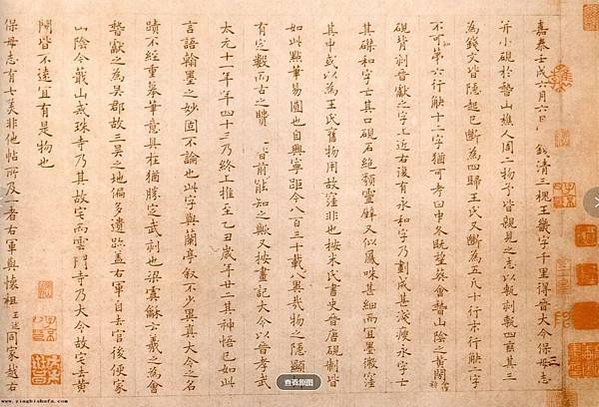 嘉泰壬戌六月六日錢清三槐王畿字千里得晉大令保母志
并小硯於稽山樵人周二物予皆親見之志以甎刻甎四垂其三
為錢文皆隱起已斷為四歸王氏又斷為五凡十行末行缺二字
不可知第六行缺十二字猶可考曰中冬既望葬會稽山陰之黃閍
硯背刻晉獻之字上近右復有永和字乃劃成甚淺瘦永字亡
其磔和字亡其口硯石絕類靈壁又似鳳咮甚細而宜墨微窪
其中或以為王氏舊物用故窪非也按米氏書史言晉唐硯制皆
如此點筆易圓也自興寧距今八百三十載八異哉物之隱顯
有定數而古之賢者前能知之歟又按畫記大令以晉孝武
太元十一年年四十三乃終上推至乙丑歲年廿二其神悟已如此
言語翰墨之妙固不論也此字與蘭亭敘不少異真大令之名
蹟不經重摹筆意具在猶勝定武刻也梁虞龢云羲之為會
稽獻之為吳郡故三吳之地偏多遺跡蓋右軍自去官後便家
山陰今蕺山戒珠寺乃其故宅而雲門寺乃大令故宅去黃
閍皆不遠宜有是物也
保母志有七美非他帖所及一者右軍與懷祖王述同家越右
查看原图
www.yingbishufa.com